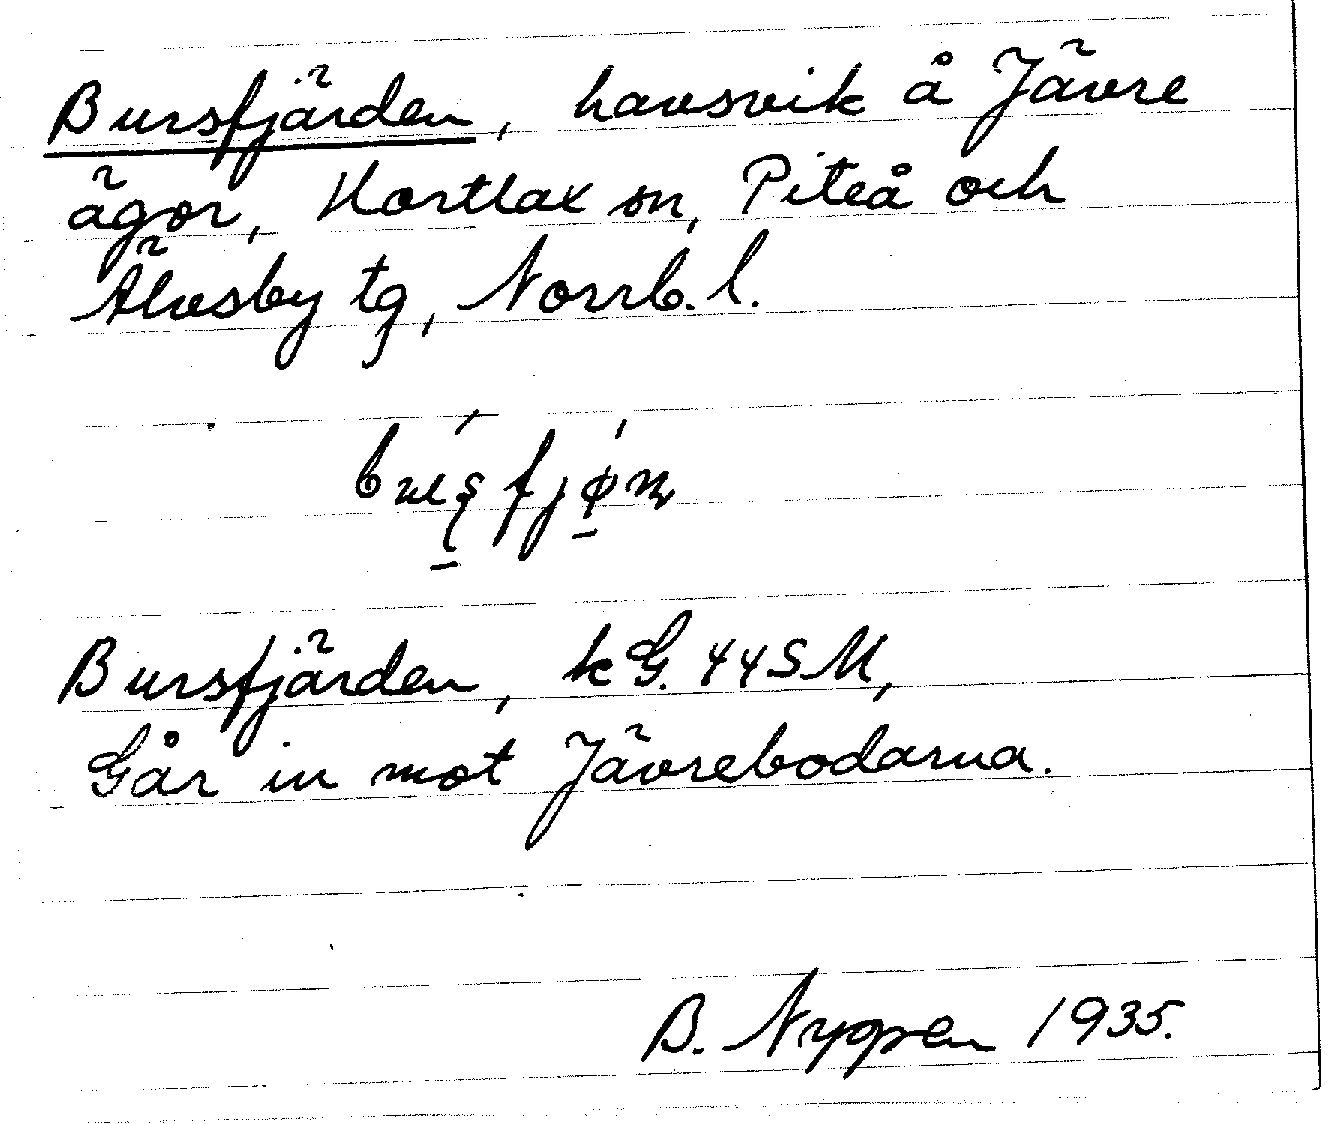 Bursfjärden, havsvik å Jävre
ägor, Hortlax sn, Piteå och
Älvsby tg, Norrb. l.
Bursfjärden, kG. 44SM,
Går in mot Jävrebodarna.
B. Nygren 1935.